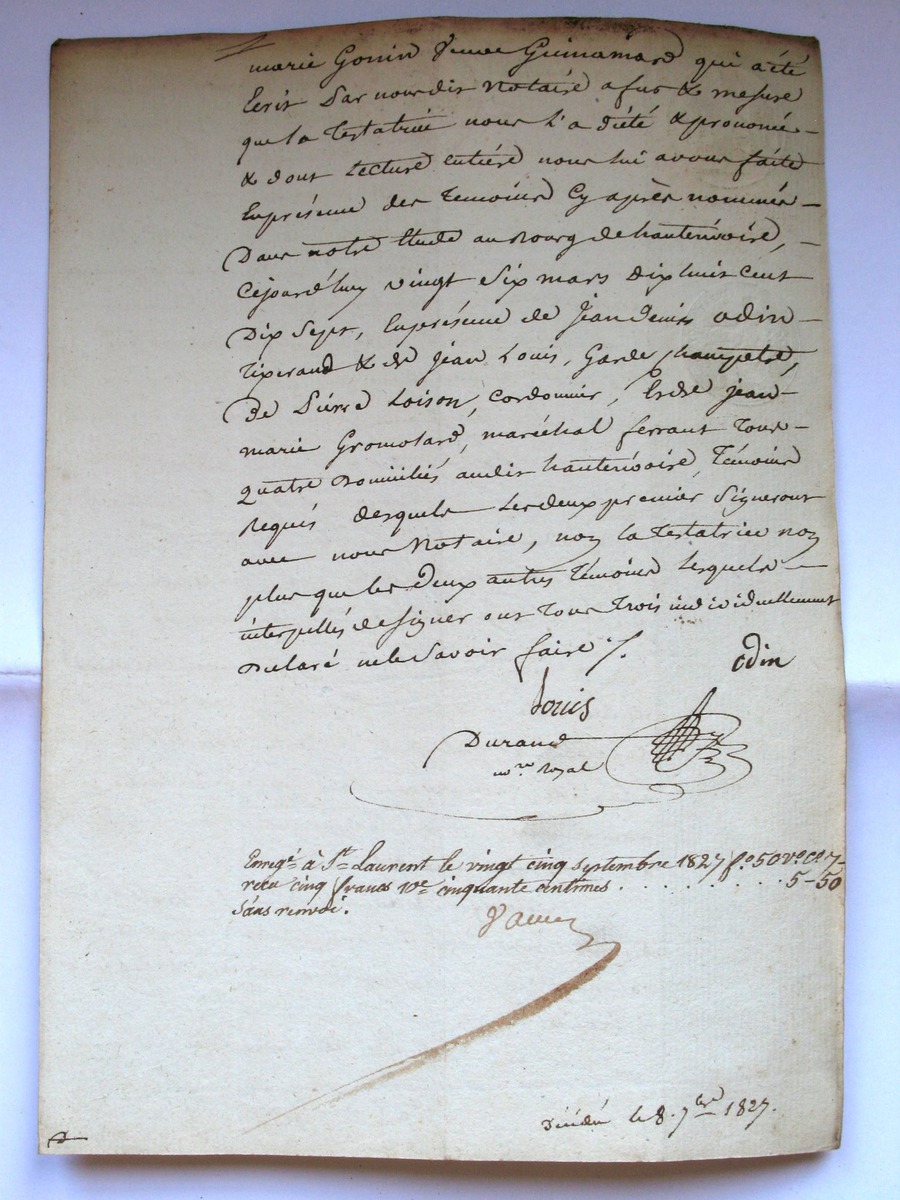 marie Gonin veuve Guinamard qui a été
Ecrit par nous dit Notaire a fur & mesure
que la Testatrice nous l'a dicté & prononcé -
& dont lecture entière nous lui avons faite
En présence des Temoins Cy après nommés -
Dans notre Etude au Bourg de hauterivoire, -
Cejourd'huy vingt Six mars Dix huit Cent
Dix Sept, En présence de Jean Denis odin -
Tixerand & de Jean Louis, Garde champetre,
De Pierre Loison, Cordonnier, & de jean-
marie Gromolard, maréchal ferrant Tous -
Quatre Domiciliés audit hauterivoire, Témoins
Requis desquels les deux premier Signeront
avec nous Notaire, non la Testatrice non
plus que les Deux autres Témoins lesquels -
interpellés de signer ont Tous Trois individuellement
Declaré ne le Savoir faire /.
odin
Louis
Durand
nore Royal
Enregé à St Laurent le vingt cinq Septembre 1827 fo. 50 vo. Ce 7 -
reçu cinq francs 10e cinquante centimes . . . . . . . . . 5-50
Sans renvoi.
Décédé le 8. 7bre 1827.